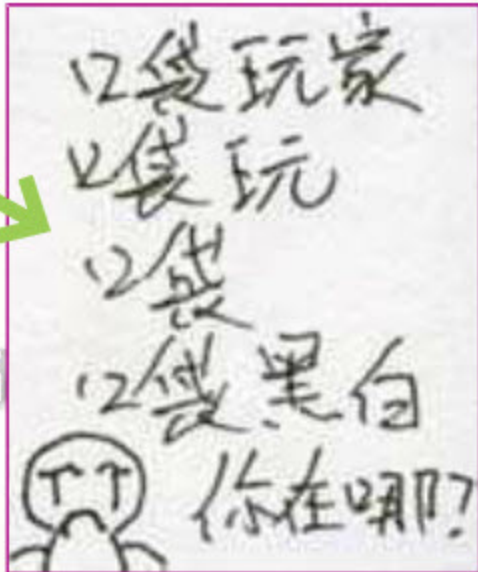 口袋玩家
口袋玩
口袋
口袋黑白
你在哪?